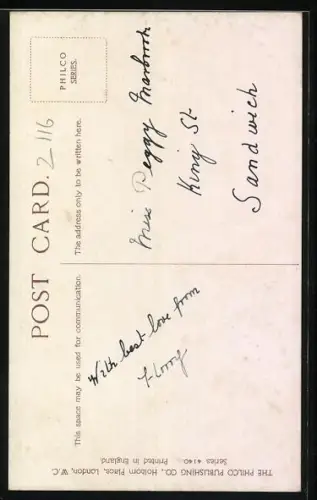 POST CARD.
2-116
PHILCO
SERIES.
This space may be used for communication.
The address only to be written here.
With best love from
Florry
Miss Peggy
King St
Sandwich
THE PHILCO PUBLISHING CO., Holborn Place, London, W.C.
Series 4140 Printed in England.